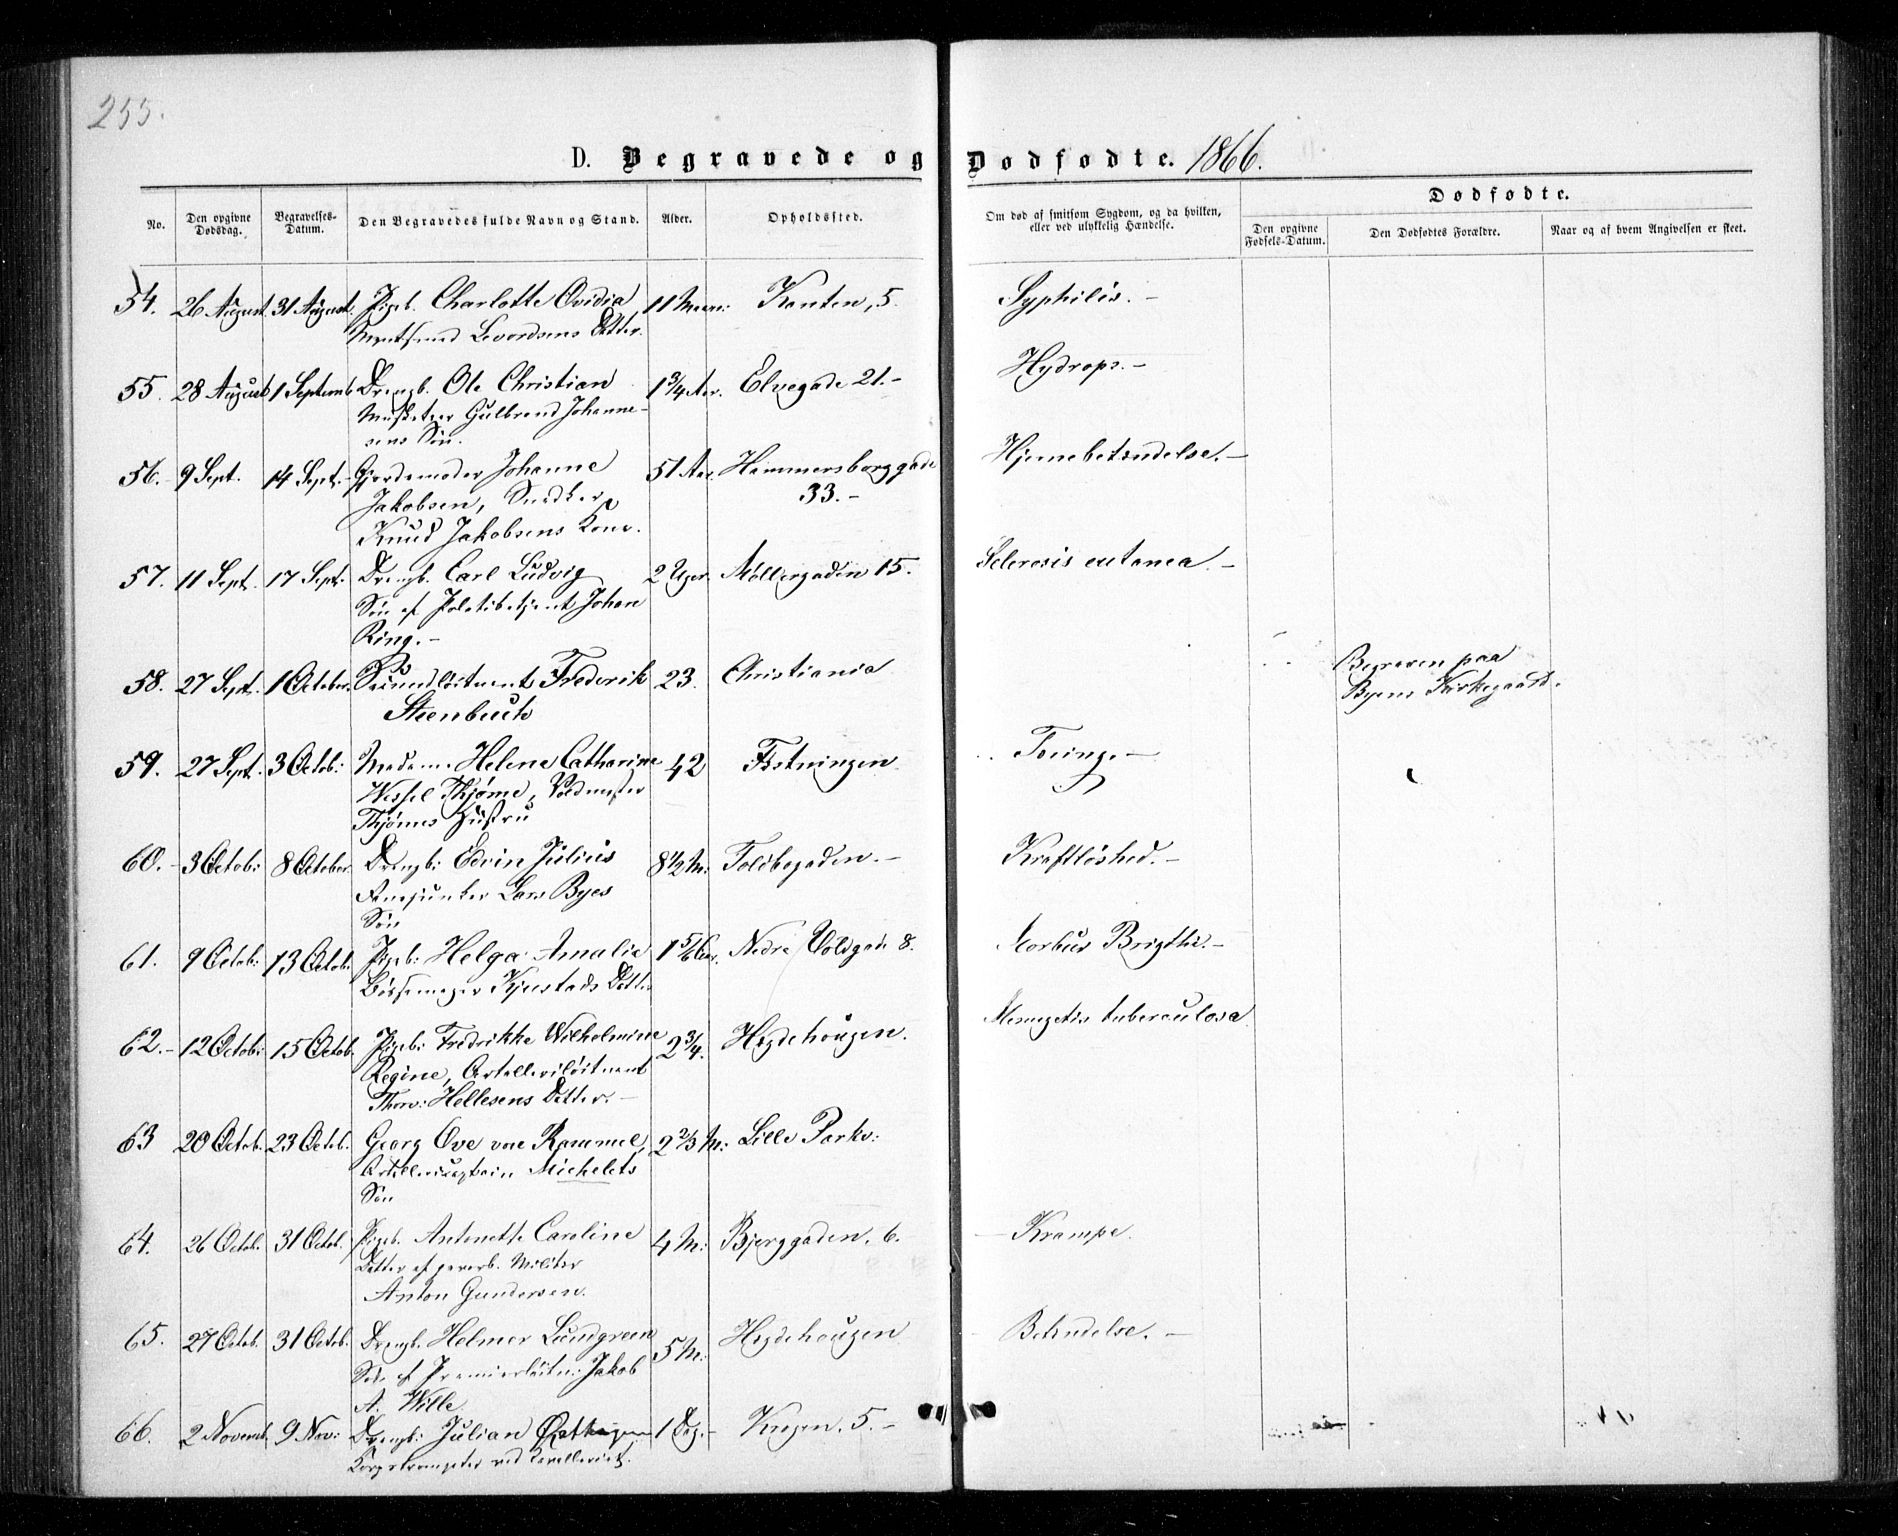 255.
D. Begravede og Dødfødte. 1866.
No.
Den opgivne Dødsdag.
Begravelses-Datum.
Den Begravedes fulde Navn og Stand.
Alder.
Opholdssted.
Om død af smitsom Sygdom, og da hvilken, eller ved ulykkelig Hændelse.
Dødfødte.
Den opgivne Fødsels-Datum.
Den Dødfødtes Forældre.
Naar og af hvem Angivelsen er skeet.
54. 26 August 31 August. Pigeb. Charlotte Ovidia 11 Maan: Kanten, 5. Syphilis. -
Sevordsens Datter.
55. 28 August 1 Septemb Drengb. Ole Christian 1 3/4 Aar. Elvegade 21. - Hydrops. -
Musketeer Gulbrand Johanne-
sens Søn.
56. - 9 Sept. 14 Sept. Gjordemoder Johanne 51 Aar. Hammersborggade Hjernebetændelse. -
Jakobsen, Snedker 33. -
Knud Jakobsens Kone.
57. 11 Sept. 17 Sept. Drengb. Carl Ludvig 2 Uger. Møllergaden 15. Sclerosis cutanea. -
Søn af Politibetjent Johan
Ring. -
58. 27 Sept. 1 October. Secundlöitnant Frederik 23. Christiania Begraven paa
Steenbuch Byens Kirkegaard.
59. 27 Sept. 3 Octob: Madame Helene Catharine 42 Fæstningen Tæring. -
Wessel Thjøme, Voldmester
Thjømes Hustru
60. - 3 Octob: 8 October. Drengb: Edvin Julius 8 1/2 M: Toldbogaden. - Kraftløshed. -
Fanejunker Lars Byes
Søn
61. 9 Octob: 13 Octob: Pigeb: Helga Amalie 1 5/6 Aar. Nedre Voldgade 8. Morbus Brigthii. -
Bøssemager Kjustads Datter
62. - 12 Octob: 15 Octob. Pigeb: Fredrikke Wilhelmine 2 3/4. Hegdehougen. Meningitis tuberculosa
Regine, Artillerilöitnant
Thorv: Hellesens Datter. -
63 20 Octob. 23 Octob. Georg Ove von Rammel, 2 2/3 M: Lille Parkv:
Artillericaptain Michelets
Søn
64. 26 Octob. 31 Octob. Pigeb. Antonette Caroline 4 M: Bjerggaden, 6. - Krampe.
Datter af gevorb. Militær
Anton Gundersen.
65. 27 Octob. 31 Octob. Drengb. Helmer Lundgreen 5 M: Hegdehougen Betændelse. -
Søn af Premierlöitn: Jakob
A. Wille
66. 2 Novemb. 9 Nov: Drengb: Julian 1 Dag. - Krogen, 5. -
Korpstrompeter ved Cavalleriet.